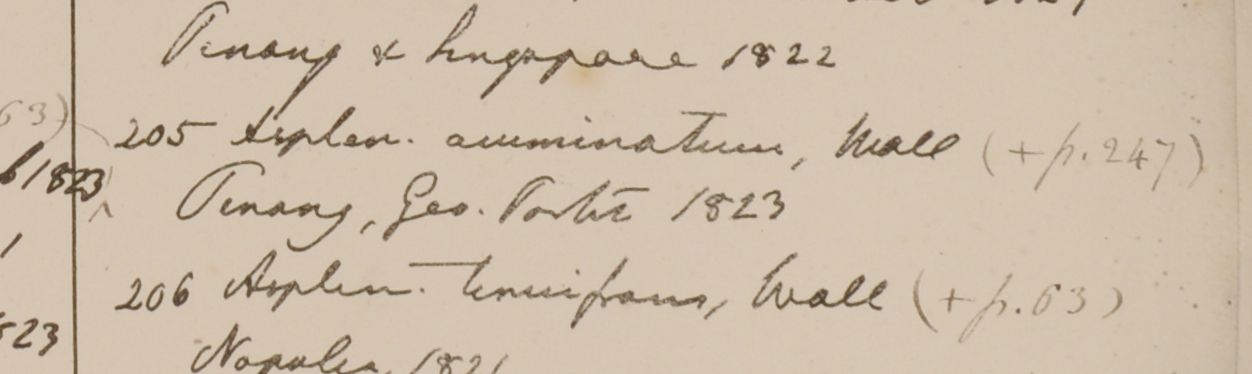 Penang & Singapore 1822
63)
205 Asplen. acuminatum, Wall (+ p. 247)
1823
Penang, Geo. Porter 1823
206 Asplen. tenuifrons, Wall (+ p. 63)
523
Napalia, 1821